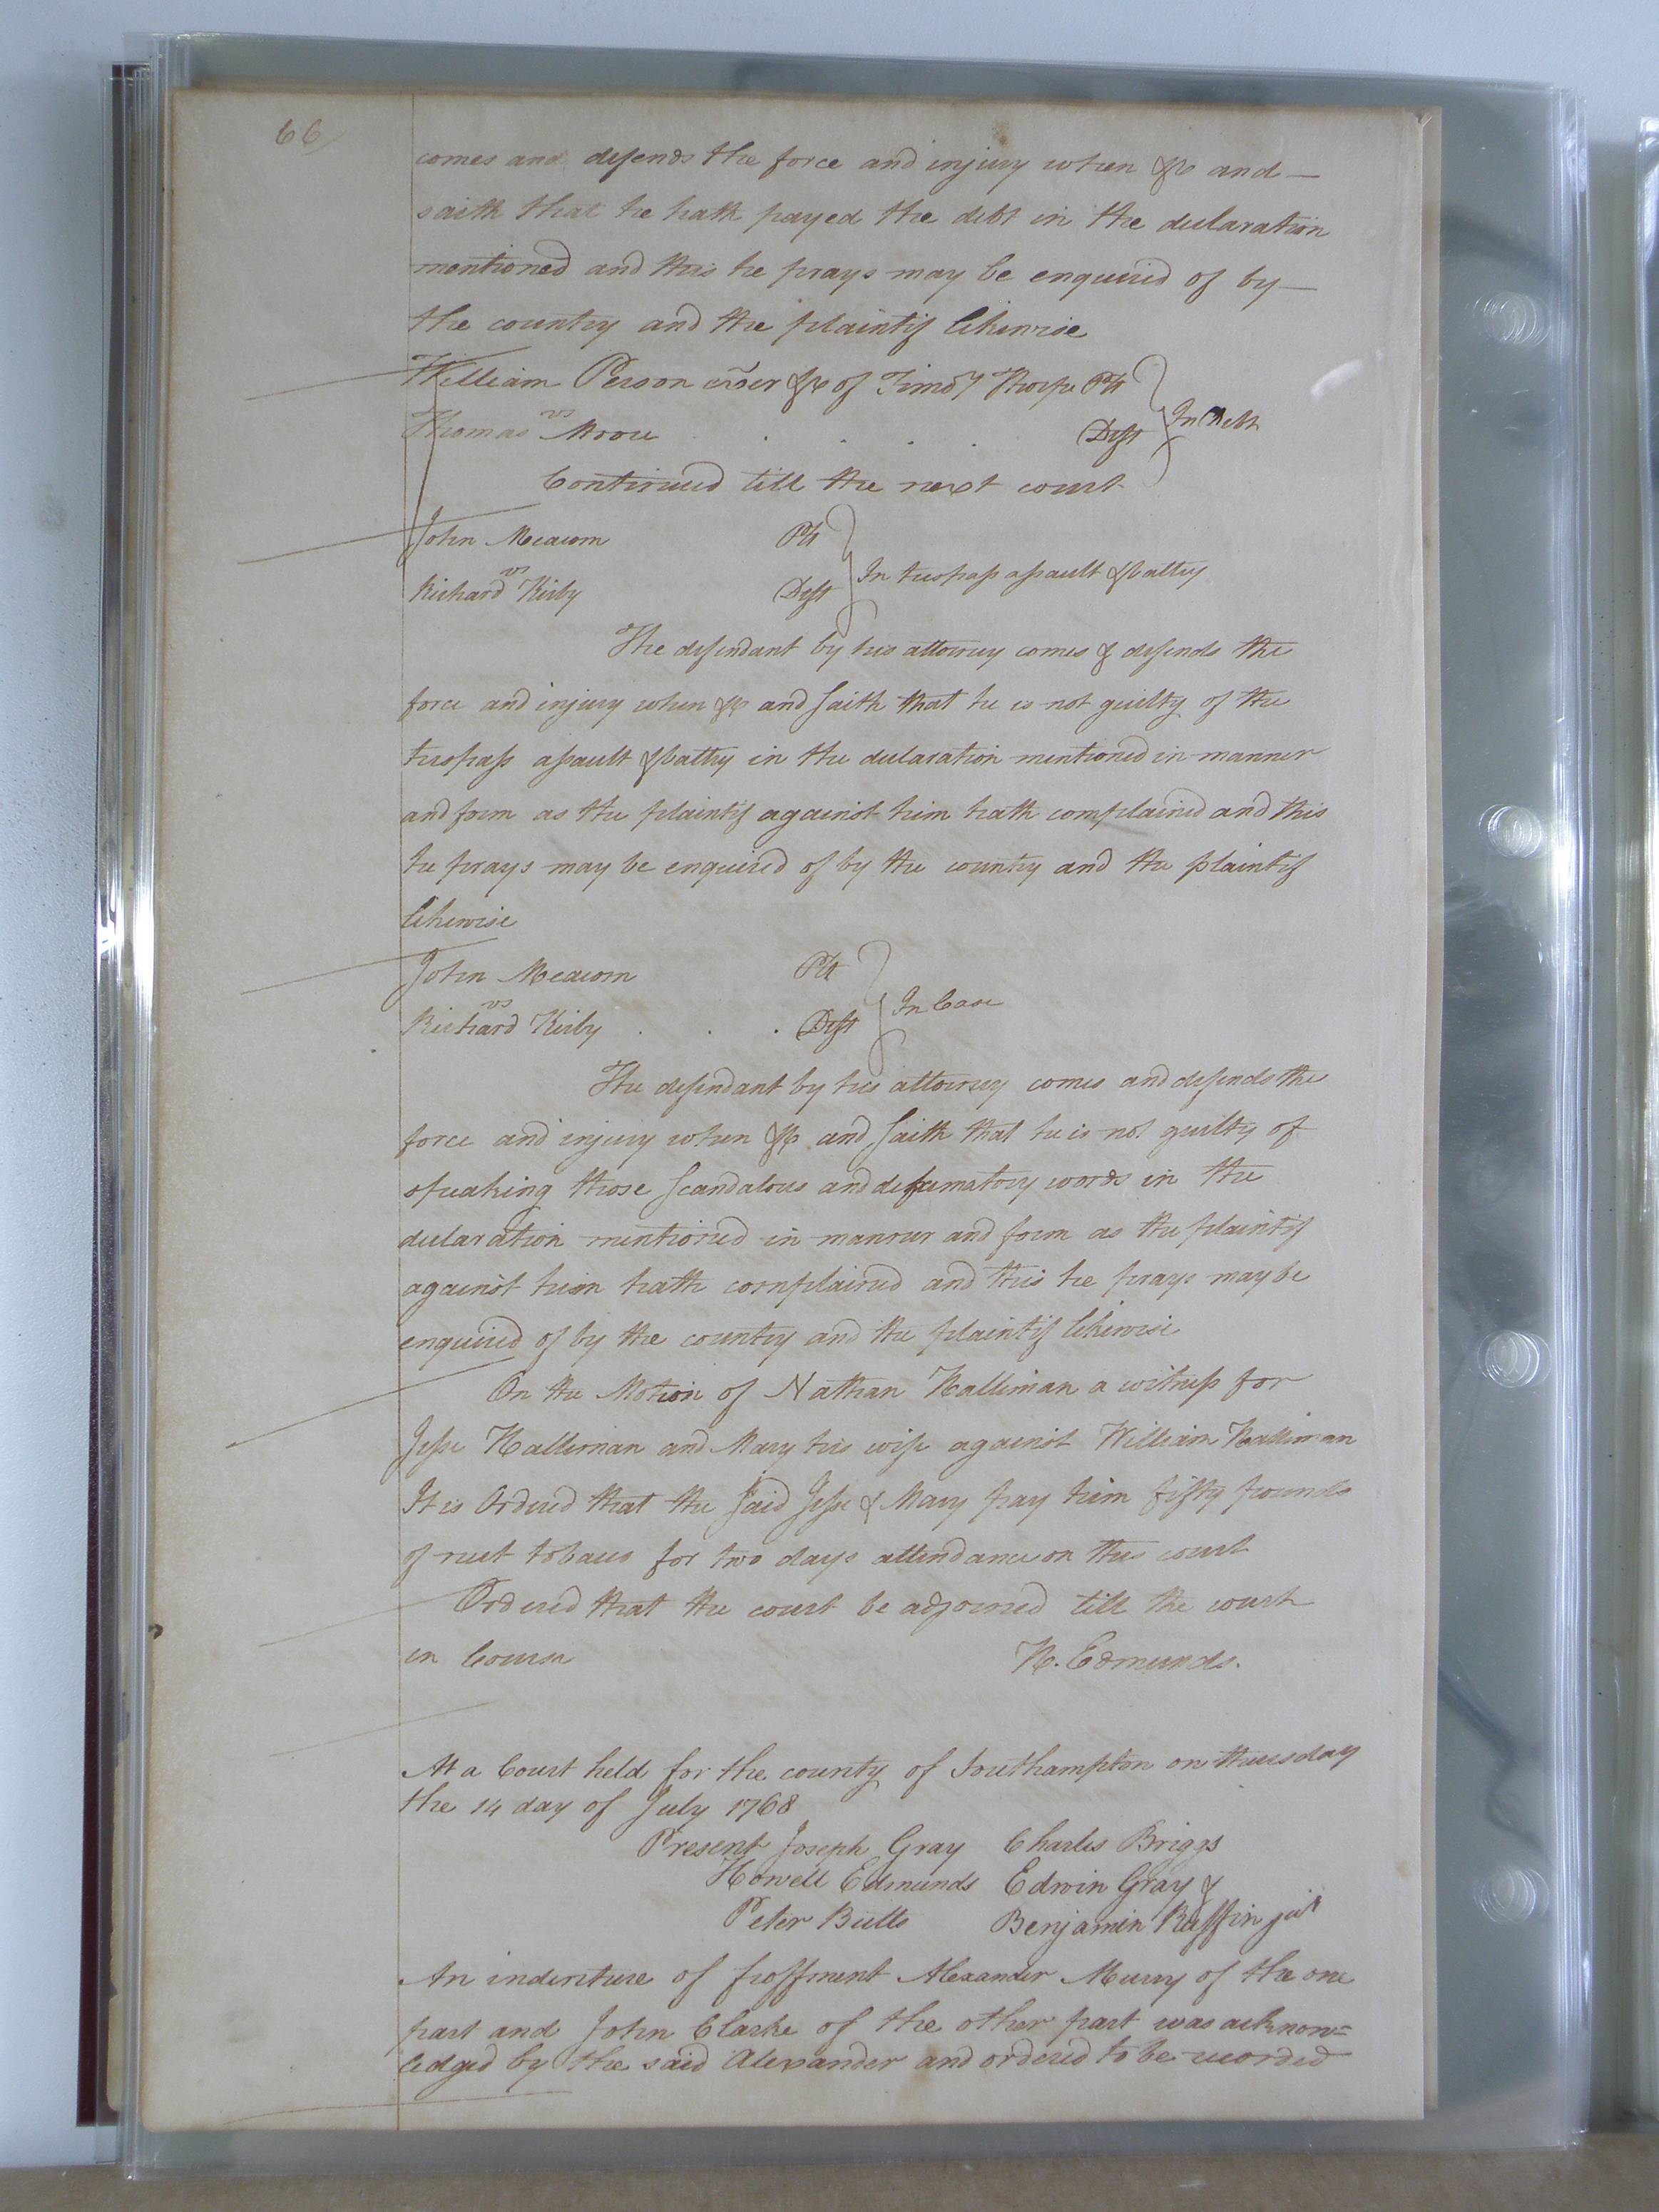 66
comes and defends the force and injury when &c and
saith that he hath payed the debt in the declaration
mentioned and this he prays may be enquired of by
the country and the plaintif likewise
William Person &c of Timoy Thorpe Plt
vs In Debt
Thomas Deft
Continued till the next court
John Meacom Plt
vs In trespass assault & battry
Richard Kirby Deft
The defendant by his attorney comes & defends the
force and injury when &c and saith that he is not guilty of the
trespass assault & battry in the declaration mentioned in manner
and form as the plaintif against him hath complained and this
he prays may be enquired of by the country and the plaintif
likewise
John Meacom Plt
vs In Case
Richard Kirby Deft
The defendant by his attorney comes and defends the
force and injury when &c and saith that he is not guilty of
speaking those scandalous and defamatory words in the
declaration mentioned in manner and form as the plaintif
against him hath complained and this he prays may be
enquired of by the country and the plaintif likewise
On the Motion of Nathan Halliman a witness for
Jesse Halliman and Mary his wife against William Halliman
It is Ordered that the said Jesse & Mary pay him fifty pounds
of neet tobacco for two days attendance on this court
Ordered that the court be adjourned till the court
in Course H. Edmunds.
At a Court held for the county of Southampton on thursday
the 14 day of July 1768
Present Joseph Gray Charles Briggs
Howell Edmunds Edwin Gray &
Peter Butts Benjamin Ruffin
An indenture of feoffment Alexander Murry of the one
part and John Clarke of the other part was acknow=
ledged by the said Alexander and ordered to be recorded